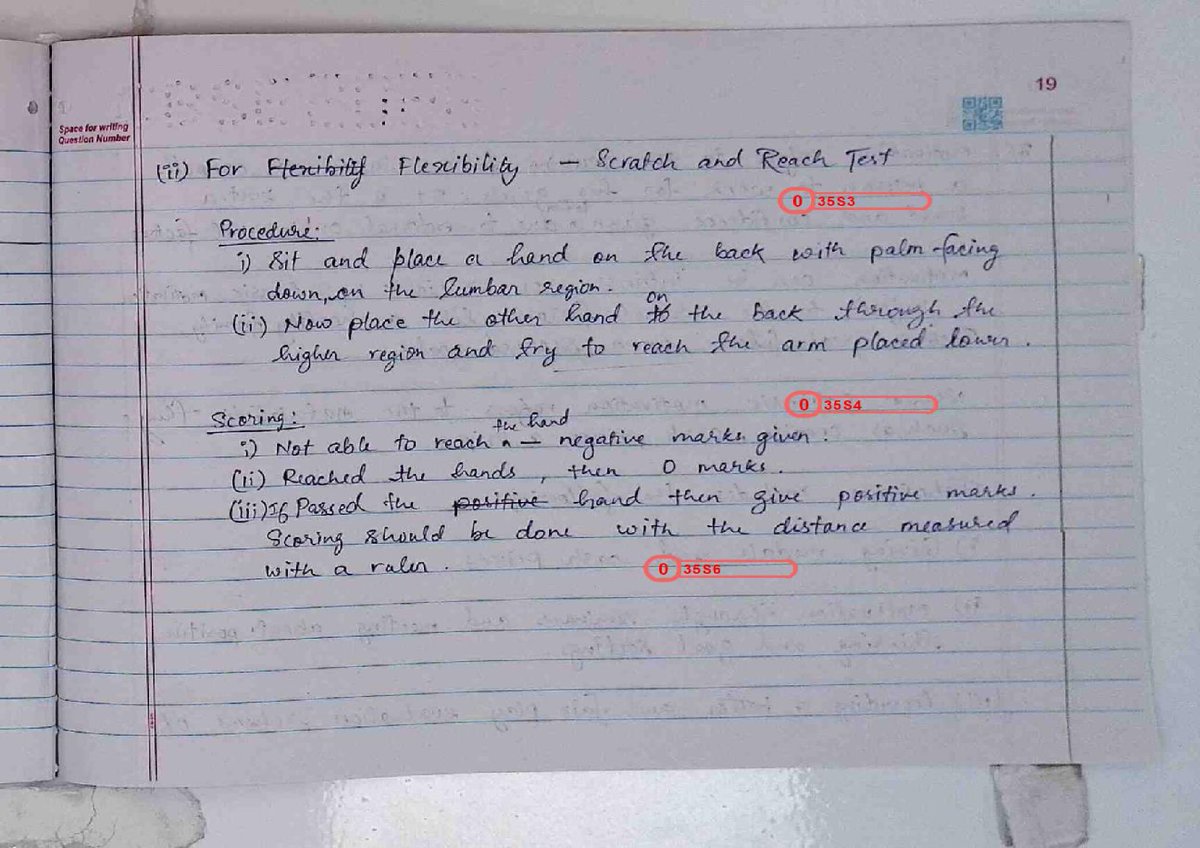 19
Space for writing
Question Number
(ii) For Flexibility Flexibility – Scratch and Reach Test
0 35S3
Procedure:
i) Sit and place a hand on the back with palm facing
down, on the lumbar region.
(ii) Now place the other hand to on the back through the
higher region and try to reach the arm placed lower.
0 35S4
Scoring:
i) Not able to reach the hand → negative marks given.
(ii) Reached the hands, then 0 marks.
(iii) If Passed the positive hand then give positive marks.
Scoring should be done with the distance measured
with a ruler.
0 35S6